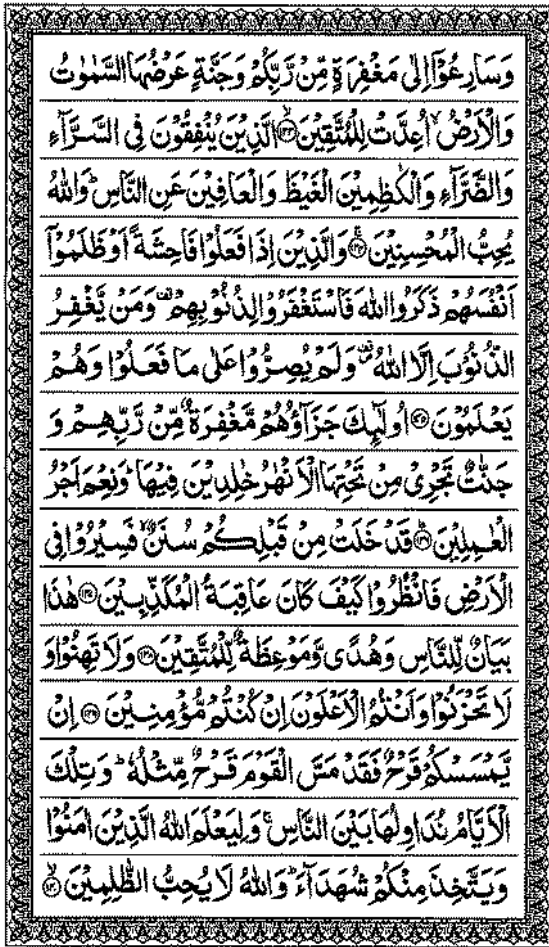 وَسَارِعُوْۤا اِلٰى مَغْفِرَةٍ مِّنْ رَّبِّكُمْ وَجَنَّةٍ عَرْضُهَا السَّمٰوٰتُ
وَالْاَرْضُ ۙ اُعِدَّتْ لِلْمُتَّقِيْنَ ۙ﴿۱۳۳﴾ الَّذِيْنَ يُنْفِقُوْنَ فِى السَّرَّآءِ
وَالضَّرَّآءِ وَالْكٰظِمِيْنَ الْغَيْظَ وَالْعَافِيْنَ عَنِ النَّاسِ ؕ وَاللّٰهُ
يُحِبُّ الْمُحْسِنِيْنَ ۚ﴿۱۳۴﴾ وَالَّذِيْنَ اِذَا فَعَلُوْا فَاحِشَةً اَوْ ظَلَمُوْۤا
اَنْفُسَهُمْ ذَكَرُوا اللّٰهَ فَاسْتَغْفَرُوْا لِذُنُوْبِهِمْ ۪ وَمَنْ يَّغْفِرُ
الذُّنُوْبَ اِلَّا اللّٰهُ ۪۟ وَلَمْ يُصِرُّوْا عَلٰى مَا فَعَلُوْا وَهُمْ
يَعْلَمُوْنَ ﴿۱۳۵﴾ اُولٰٓئِكَ جَزَآؤُهُمْ مَّغْفِرَةٌ مِّنْ رَّبِّهِمْ وَ
جَنّٰتٌ تَجْرِىْ مِنْ تَحْتِهَا الْاَنْهٰرُ خٰلِدِيْنَ فِيْهَا ؕ وَنِعْمَ اَجْرُ
الْعٰمِلِيْنَ ؕ﴿۱۳۶﴾ قَدْ خَلَتْ مِنْ قَبْلِكُمْ سُنَنٌ ۙ فَسِيْرُوْا فِى
الْاَرْضِ فَانْظُرُوْا كَيْفَ كَانَ عَاقِبَةُ الْمُكَذِّبِيْنَ ﴿۱۳۷﴾ هٰذَا
بَيَانٌ لِّلنَّاسِ وَهُدًى وَّمَوْعِظَةٌ لِّلْمُتَّقِيْنَ ﴿۱۳۸﴾ وَلَا تَهِنُوْا وَ
لَا تَحْزَنُوْا وَاَنْتُمُ الْاَعْلَوْنَ اِنْ كُنْتُمْ مُّؤْمِنِيْنَ ﴿۱۳۹﴾ اِنْ
يَّمْسَسْكُمْ قَرْحٌ فَقَدْ مَسَّ الْقَوْمَ قَرْحٌ مِّثْلُهٗ ؕ وَتِلْكَ
الْاَيَّامُ نُدَاوِلُهَا بَيْنَ النَّاسِ ۚ وَلِيَعْلَمَ اللّٰهُ الَّذِيْنَ اٰمَنُوْا
وَيَتَّخِذَ مِنْكُمْ شُهَدَآءَ ؕ وَاللّٰهُ لَا يُحِبُّ الظّٰلِمِيْنَ ۙ﴿۱۴۰﴾